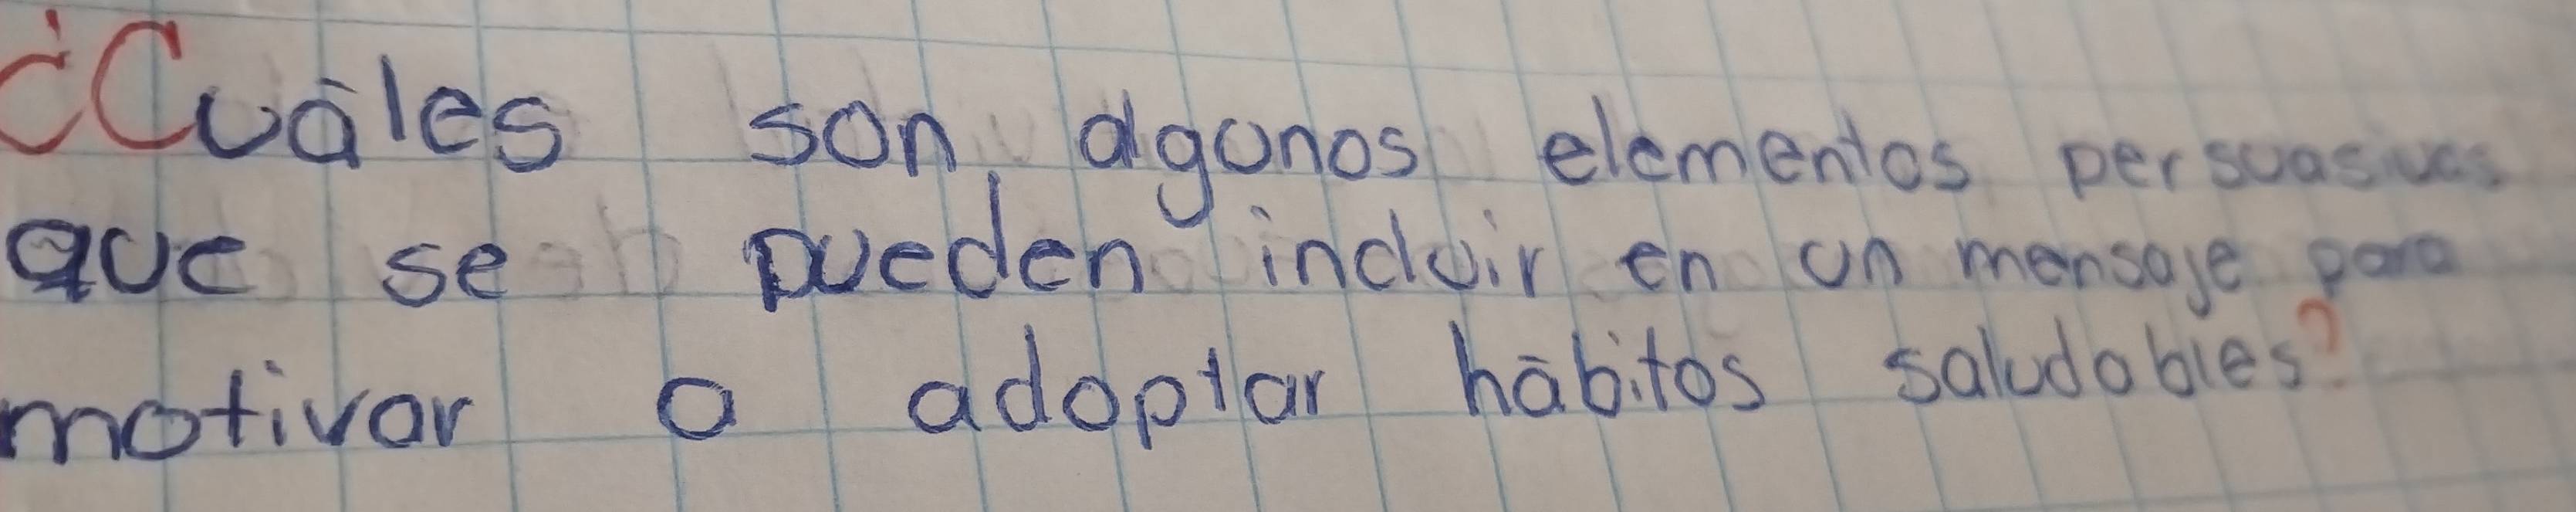 ¿Cuáles son algunos elementos persuasivos
que se pueden incluir en un mensaje para
motivar a adoptar hábitos saludables?